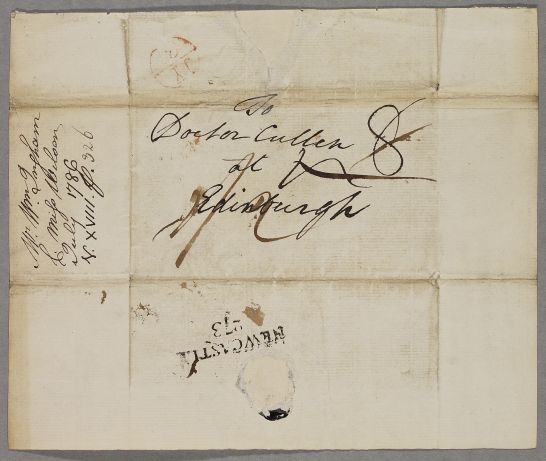 To
Doctor Cullen
at
Edinburgh
8
Mr. Wm. Ingham
Miss Wilson
July 1786
N XVIII. p. 326
NEWCASTLE
273